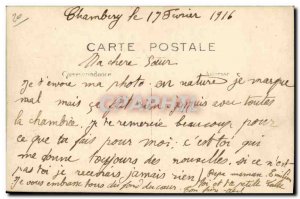 20
Chambery le 17 Fevrier 1916
CARTE POSTALE
Ma chere Sœur
Correspondance
Je t'envoie ma photo en nature je marque
mal mais ça fait rien je suis avec toutes
la chambrée, je te remercie beaucoup pour
ce que ta fais pour moi, c'est toi qui
me donne toujours des nouvelles, si ce n'est
pas toi je recevrais jamais rien
Je vous embrasse tous du fond du cœur. toi et ta petite